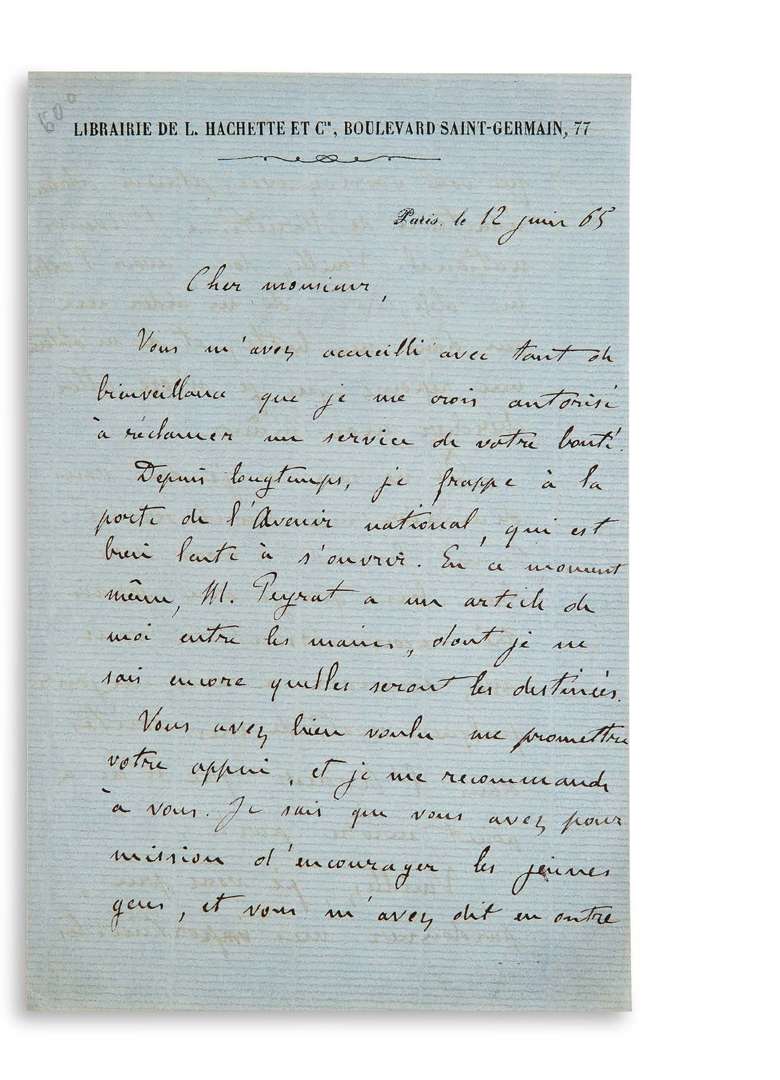 LIBRAIRIE DE L. HACHETTE ET Cie, BOULEVARD SAINT-GERMAIN, 77
Paris, le 12 juin 65
Cher monsieur,
Vous m'avez accueilli avec tant de
bienveillance que je me crois autorisé
à réclamer un service de votre bonté.
Depuis longtemps, je frappe à la
porte de l'Avenir national, qui est
bien lente à s'ouvrir. En ce moment
même, M. Peyrat a un article de
moi entre les mains, dont je ne
sais encore quelles seront les destinées.
Vous avez bien voulu me promettre
votre appui, et je me recommande
à vous. Je sais que vous avez pour
mission d'encourager les jeunes
gens, et vous m'avez dit en outre